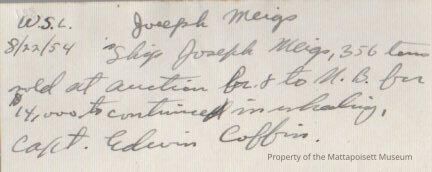 W.S.L. Joseph Meigs
8/22/54 "Ship Joseph Meigs, 356 tons
sold at auction to N. B. for
$14,000 to continue in whaling,
Capt. Edwin Coffin.
Property of the Mattapoisett Museum